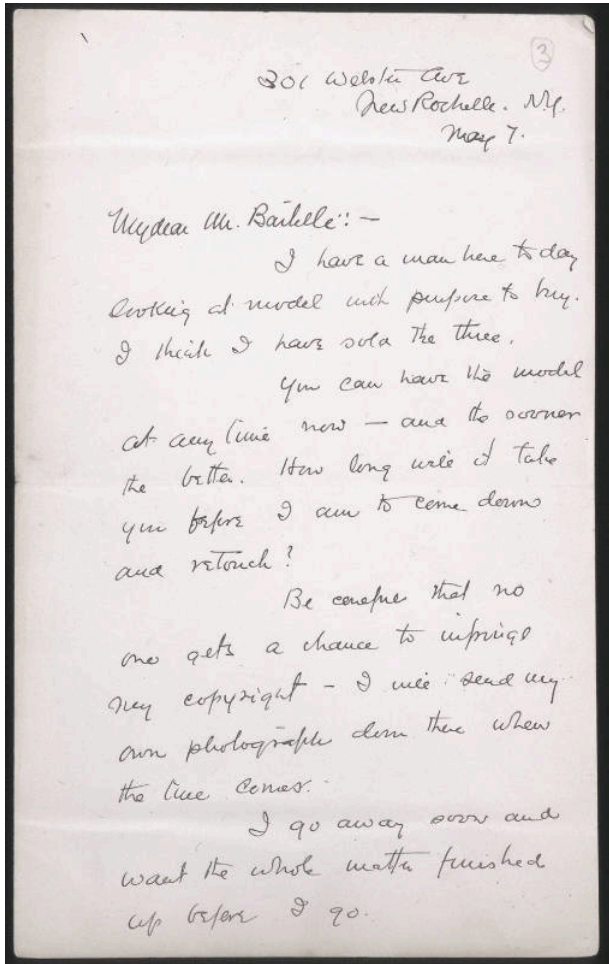 3
301 Webster Ave
New Rochelle. N.Y.
May 7.
My dear Mr. Bartelle:: —
I have a man here to day
looking at model with purpose to buy.
I think I have sold the three.
You can have the model
at any time now — and the sooner
the better. How long will it take
you before I am to come down
and retouch?
Be careful that no
one gets a chance to infringe
my copyright - I will send my
own photograph down there when
the time comes.
I go away soon and
want the whole matter finished
up before I go.